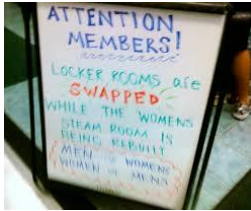 ATTENTION
MEMBERS!
LOCKER ROOMS are
SWAPPED
WHILE THE WOMENS
STEAM ROOM IS
BEING REBUILT
MEN WOMENS
WOMEN MENS